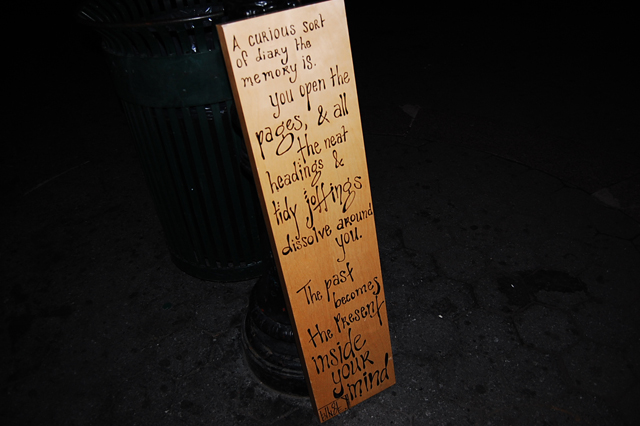 A curious sort
of diary the
memory is.
you open the
pages, & all
the neat
headings &
tidy jottings
dissolve around
you.
The past
becomes
the present
inside
your
mind